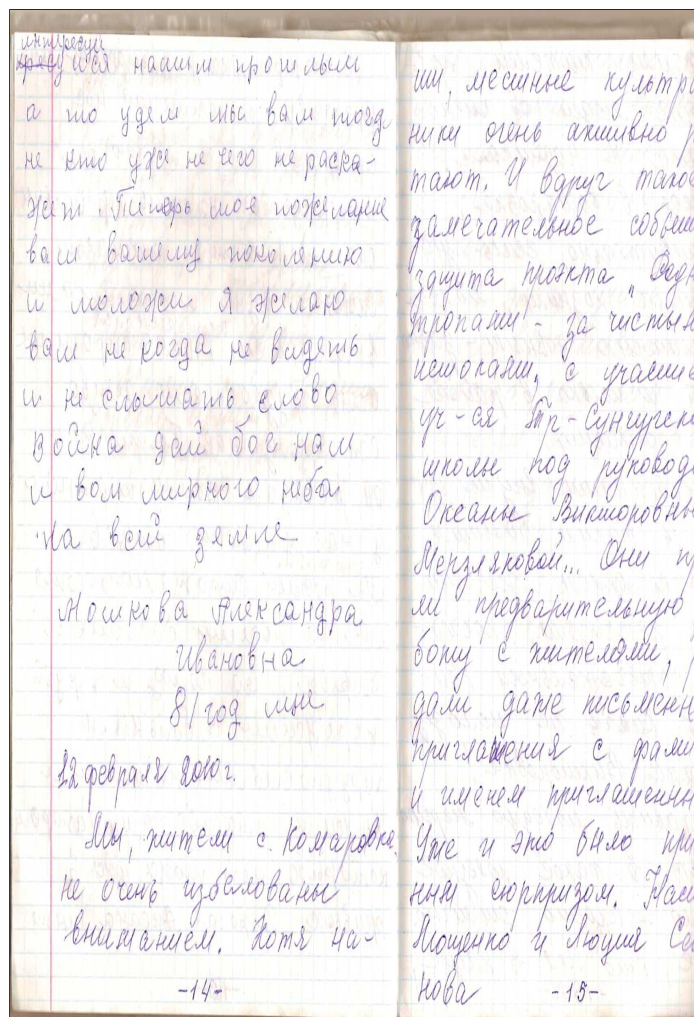 интересуй
уйтся нашим прошлым
а то удем мы вам тогд
не кто уже не чего не раска-
жет. Типерь мое пожелание
вам вашему поколению
и моложи я желаю
вам не когда не видеть
и не слышать слово
война дей бог нам
и вам мирного неба
на всей земле
Мошкова Александра
Ивановна
81 год мне
12 февраля 2010 г.
Мы, жители с. Комаровка,
не очень избалованы
вниманием. Хотя на-
-14-
ши, местные культра
ники очень активно р
тают. И вдруг такое
замечательное событи
защита проэкта „Родн
тропами - за чистым
истокам„ с участие
уч-ся Тр-Сунгурско
школы под руковод
Оксаны Викторовны
Мерзляковой... Они пр
ли предварительную
боту с жителями,
дали даже письменн
приглашения с фами
и именем приглашенны
Уже и это было при
ным сюрпризом. Наст
Мощенко и Люция Сем
нова
-15-